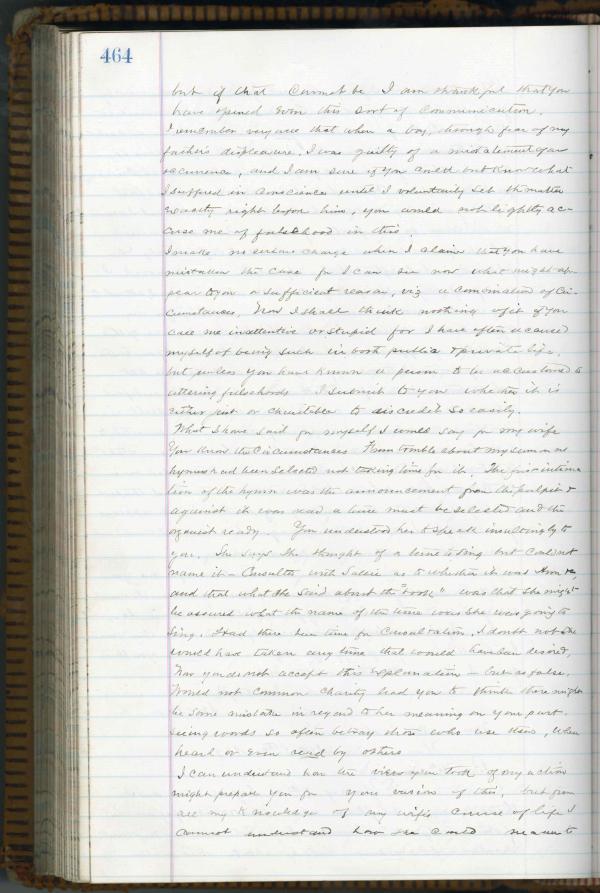 464
but if that cannot be I am thankful that you
have opened even this sort of communication.
I remember very well that when a boy, through fear of my
father's displeasure, I was guilty of a misstatement of an
occurrence, and I am sure if you could but know what
I suffered in conscience until I voluntarily set the matter
exactly right before him, you would not lightly ac-
cuse me of falsehood in this.
I make no serious charge when I claim that you have
mistaken the case for I can see now what might ap-
pear to you a sufficient reason, viz a combination of Cir-
cumstances. Now I shall think nothing of it if you
call me inattentive or stupid for I have often accused
myself of being such in both public & private life,
but unless you have known a person to be accustomed to
uttering falsehoods I submit to you whether it is
either just or charitable to discredit so easily.
What I have said for myself I would say for my wife
You know the Circumstances From trouble about my summons no
hymns had been selected not taking time for it. The first intima
tion of the hymn was the announcement from the pulpit &
against it was read a tune must be selected and the
organist ready. You understood her to speak insultingly to
you. She says she thought of a tune to sing but could not
name it - Consulted with Sallie as to whether it was
and that what she said about the "book" was that she might
be assured what the name of the tune was she was going to
Sing. Had there been time for consultation, I doubt not she
would have taken any tune that would have been desired,
Now you do not accept this explanation - but as false.
Would not common charity lead you to think there might
be some mistake in regard to her meaning on your part.
seeing words so often betray those who use them, when
heard or even read by others
I can understand how the views you took of my action
might prepare you for your version of this, but from
all my knowledge of my wife's course of life I
cannot understand how she could mean to